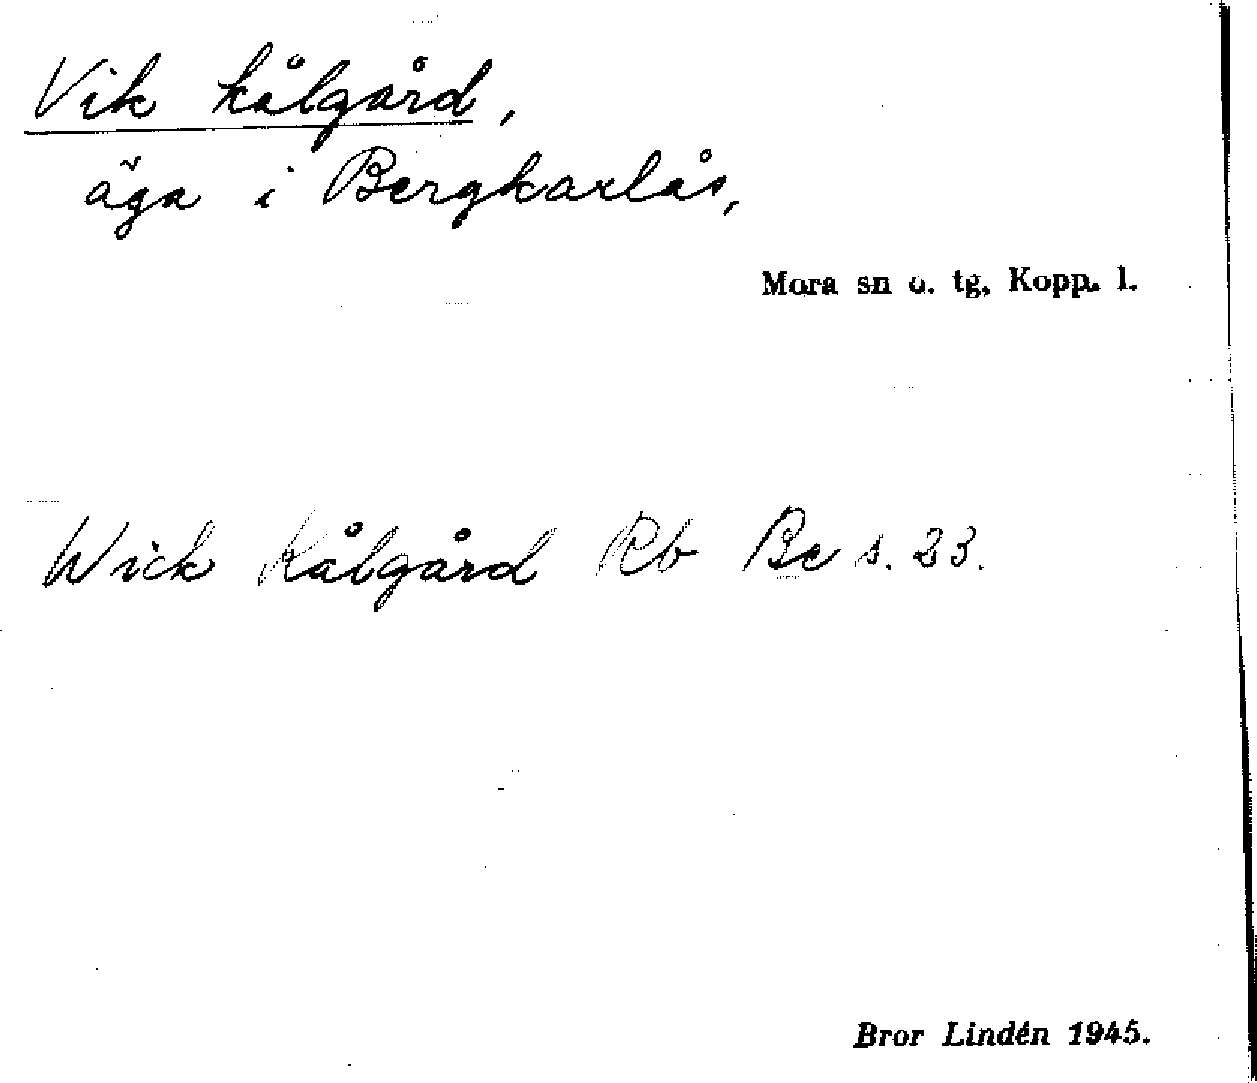 Vik kålgård,
äga i Bergkarlås,
Mora sn o. tg, Kopp. l.
Wick Kålgård Rb Be s. 23.
Bror Lindén 1945.